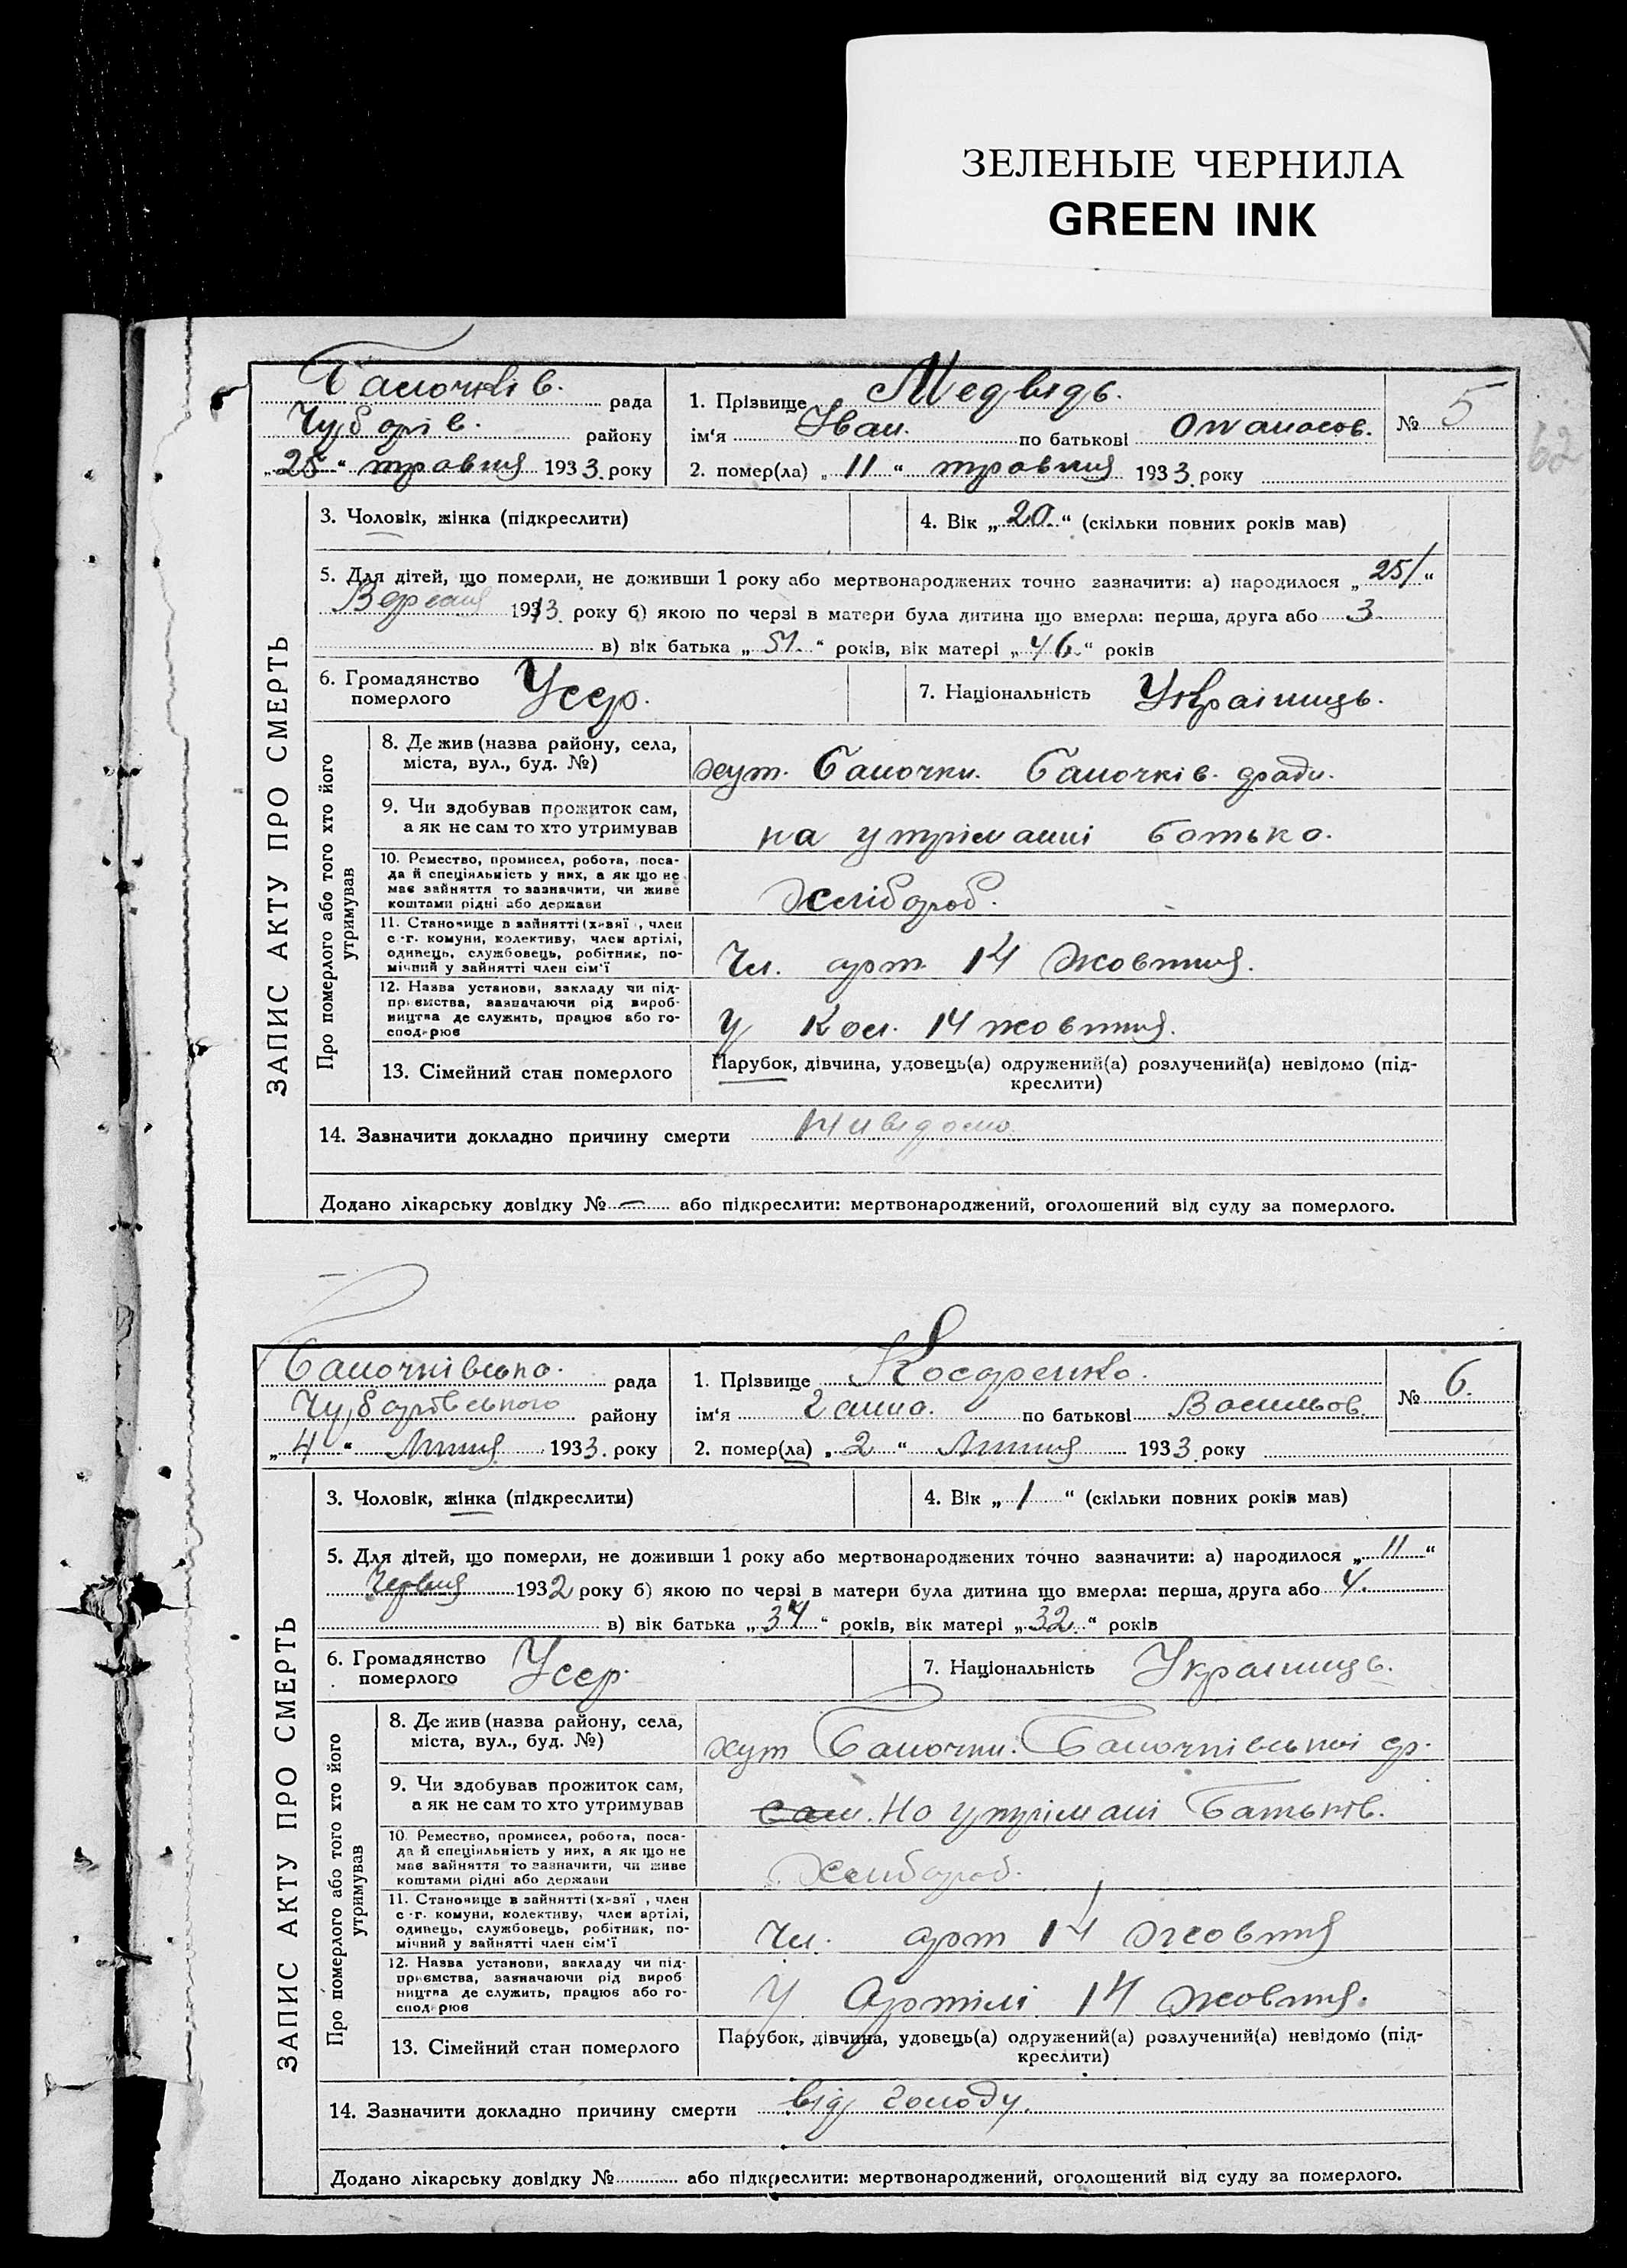 ЗЕЛЕНЫЕ ЧЕРНИЛА
GREEN INK
62
Баночків. рада
Чубарів. району
„25“ травня 1933. року
1. Прізвище Медвідь.
ім'я Іван. по батькові Опанасов.
2. помер(ла) „11“ травня 1933. року
№ 5
3. Чоловік, жінка (підкреслити)
4. Вік „20.“ (скільки повних років мав)
5. Для дітей, що померли, не доживши 1 року або мертвонароджених точно зазначити: а) народилося „25/“
Вересня 1913. року б) якою по черзі в матери була дитина що вмерла: перша, друга або 3
в) вік батька „51.“ років, вік матері „46.“ років
6. Громадянство
померлого
Усср.
7. Національність Українець.
ЗАПИС АКТУ ПРО СМЕРТЬ
Про померлого або того хто його
утримував
8. Де жив (назва району, села,
міста, вул., буд. №)
хут. Баночки. Баночків. ради.
9. Чи здобував прожиток сам,
а як не сам то хто утримував
на утріманні батька.
10. Ремество, промисел, робота, поса-
да й спеціяльність у них, а як що не
має зайняття то зазначити, чи живе
коштами рідні або держави
Хлібороб.
11. Становище в зайнятті (хазяї , член
с.-г. комуни, колективу, член артілі,
одинець, службовець, робітник, по-
мічний у зайнятті член сім'ї
Чл. арт. 14 Жовтня.
12. Назва установи, закладу чи під-
приємства, зазначаючи рід вироб-
ництва де служить, працює або го-
сподарює
у Кол. 14 жовтня.
13. Сімейний стан померлого
Парубок, дівчина, удовець(а) одружений(а) розлучений(а) невідомо (під-
креслити)
14. Зазначити докладно причину смерти Нивідомо
Додано лікарську довідку № — або підкреслити: мертвонароджений, оголошений від суду за померлого.
Баночківська. рада
Чубарівського району
„4“ Липня 1933. року
1. Прізвище Косаренко.
ім'я Ганна. по батькові Васильов.
2. помер(ла) „2“ Липня 1933. року
№ 6.
3. Чоловік, жінка (підкреслити)
4. Вік „1“ (скільки повних років мав)
5. Для дітей, що померли, не доживши 1 року або мертвонароджених точно зазначити: а) народилося „11“
Червня 1932 року б) якою по черзі в матери була дитина що вмерла: перша, друга або 4.
в) вік батька „34“ років, вік матері „32.“ років
6. Громадянство
померлого
Усср.
7. Національність Українець.
ЗАПИС АКТУ ПРО СМЕРТЬ
Про померлого або того хто його
утримував
8. Де жив (назва району, села,
міста, вул., буд. №)
хут Баночки. Баночківської р.
9. Чи здобував прожиток сам,
а як не сам то хто утримував
сам. На утрімані Батьків.
10. Ремество, промисел, робота, поса-
да й спеціяльність у них, а як що не
має зайняття то зазначити, чи живе
коштами рідні або держави
Хлибороб.
11. Становище в зайнятті (хазяї , член
с.-г. комуни, колективу, член артілі,
одинець, службовець, робітник, по-
мічний у зайнятті член сім'ї
Чл. арт 14 Жовтня
12. Назва установи, закладу чи під-
приємства, зазначаючи рід вироб-
ництва де служить, працює або го-
сподарює
У Артілі 14 Жовтня.
13. Сімейний стан померлого
Парубок, дівчина, удовець(а) одружений(а) розлучений(а) невідомо (під-
креслити)
14. Зазначити докладно причину смерти від голоду.
Додано лікарську довідку № або підкреслити: мертвонароджений, оголошений від суду за померлого.